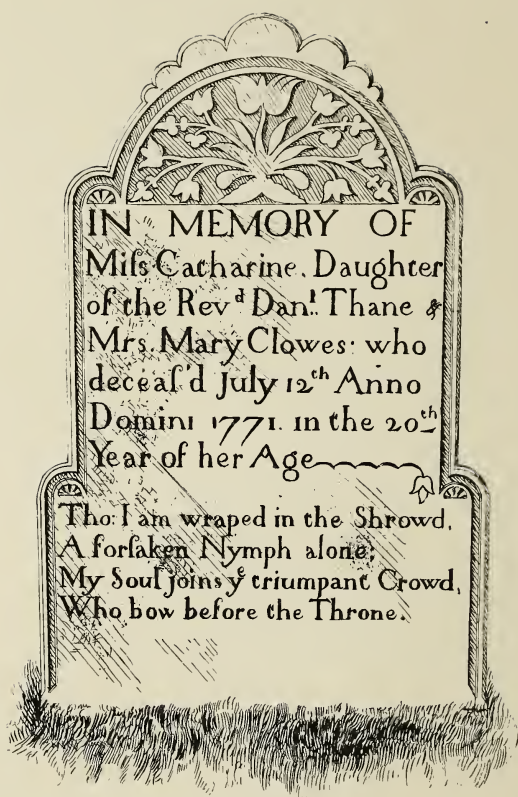 IN MEMORY OF
Miſs Catharine. Daughter
of the Revᵈ Danˡ. Thane &
Mrs. Mary Clowes: who
deceaſ'd July 12ᵗʰ Anno
Domini 1771. in the 20ᵗʰ
Year of her Age
Tho: I am wraped in the Shrowd,
A forſaken Nymph alone;
My Soul joins yᵉ triumpant Crowd,
Who bow before the Throne.